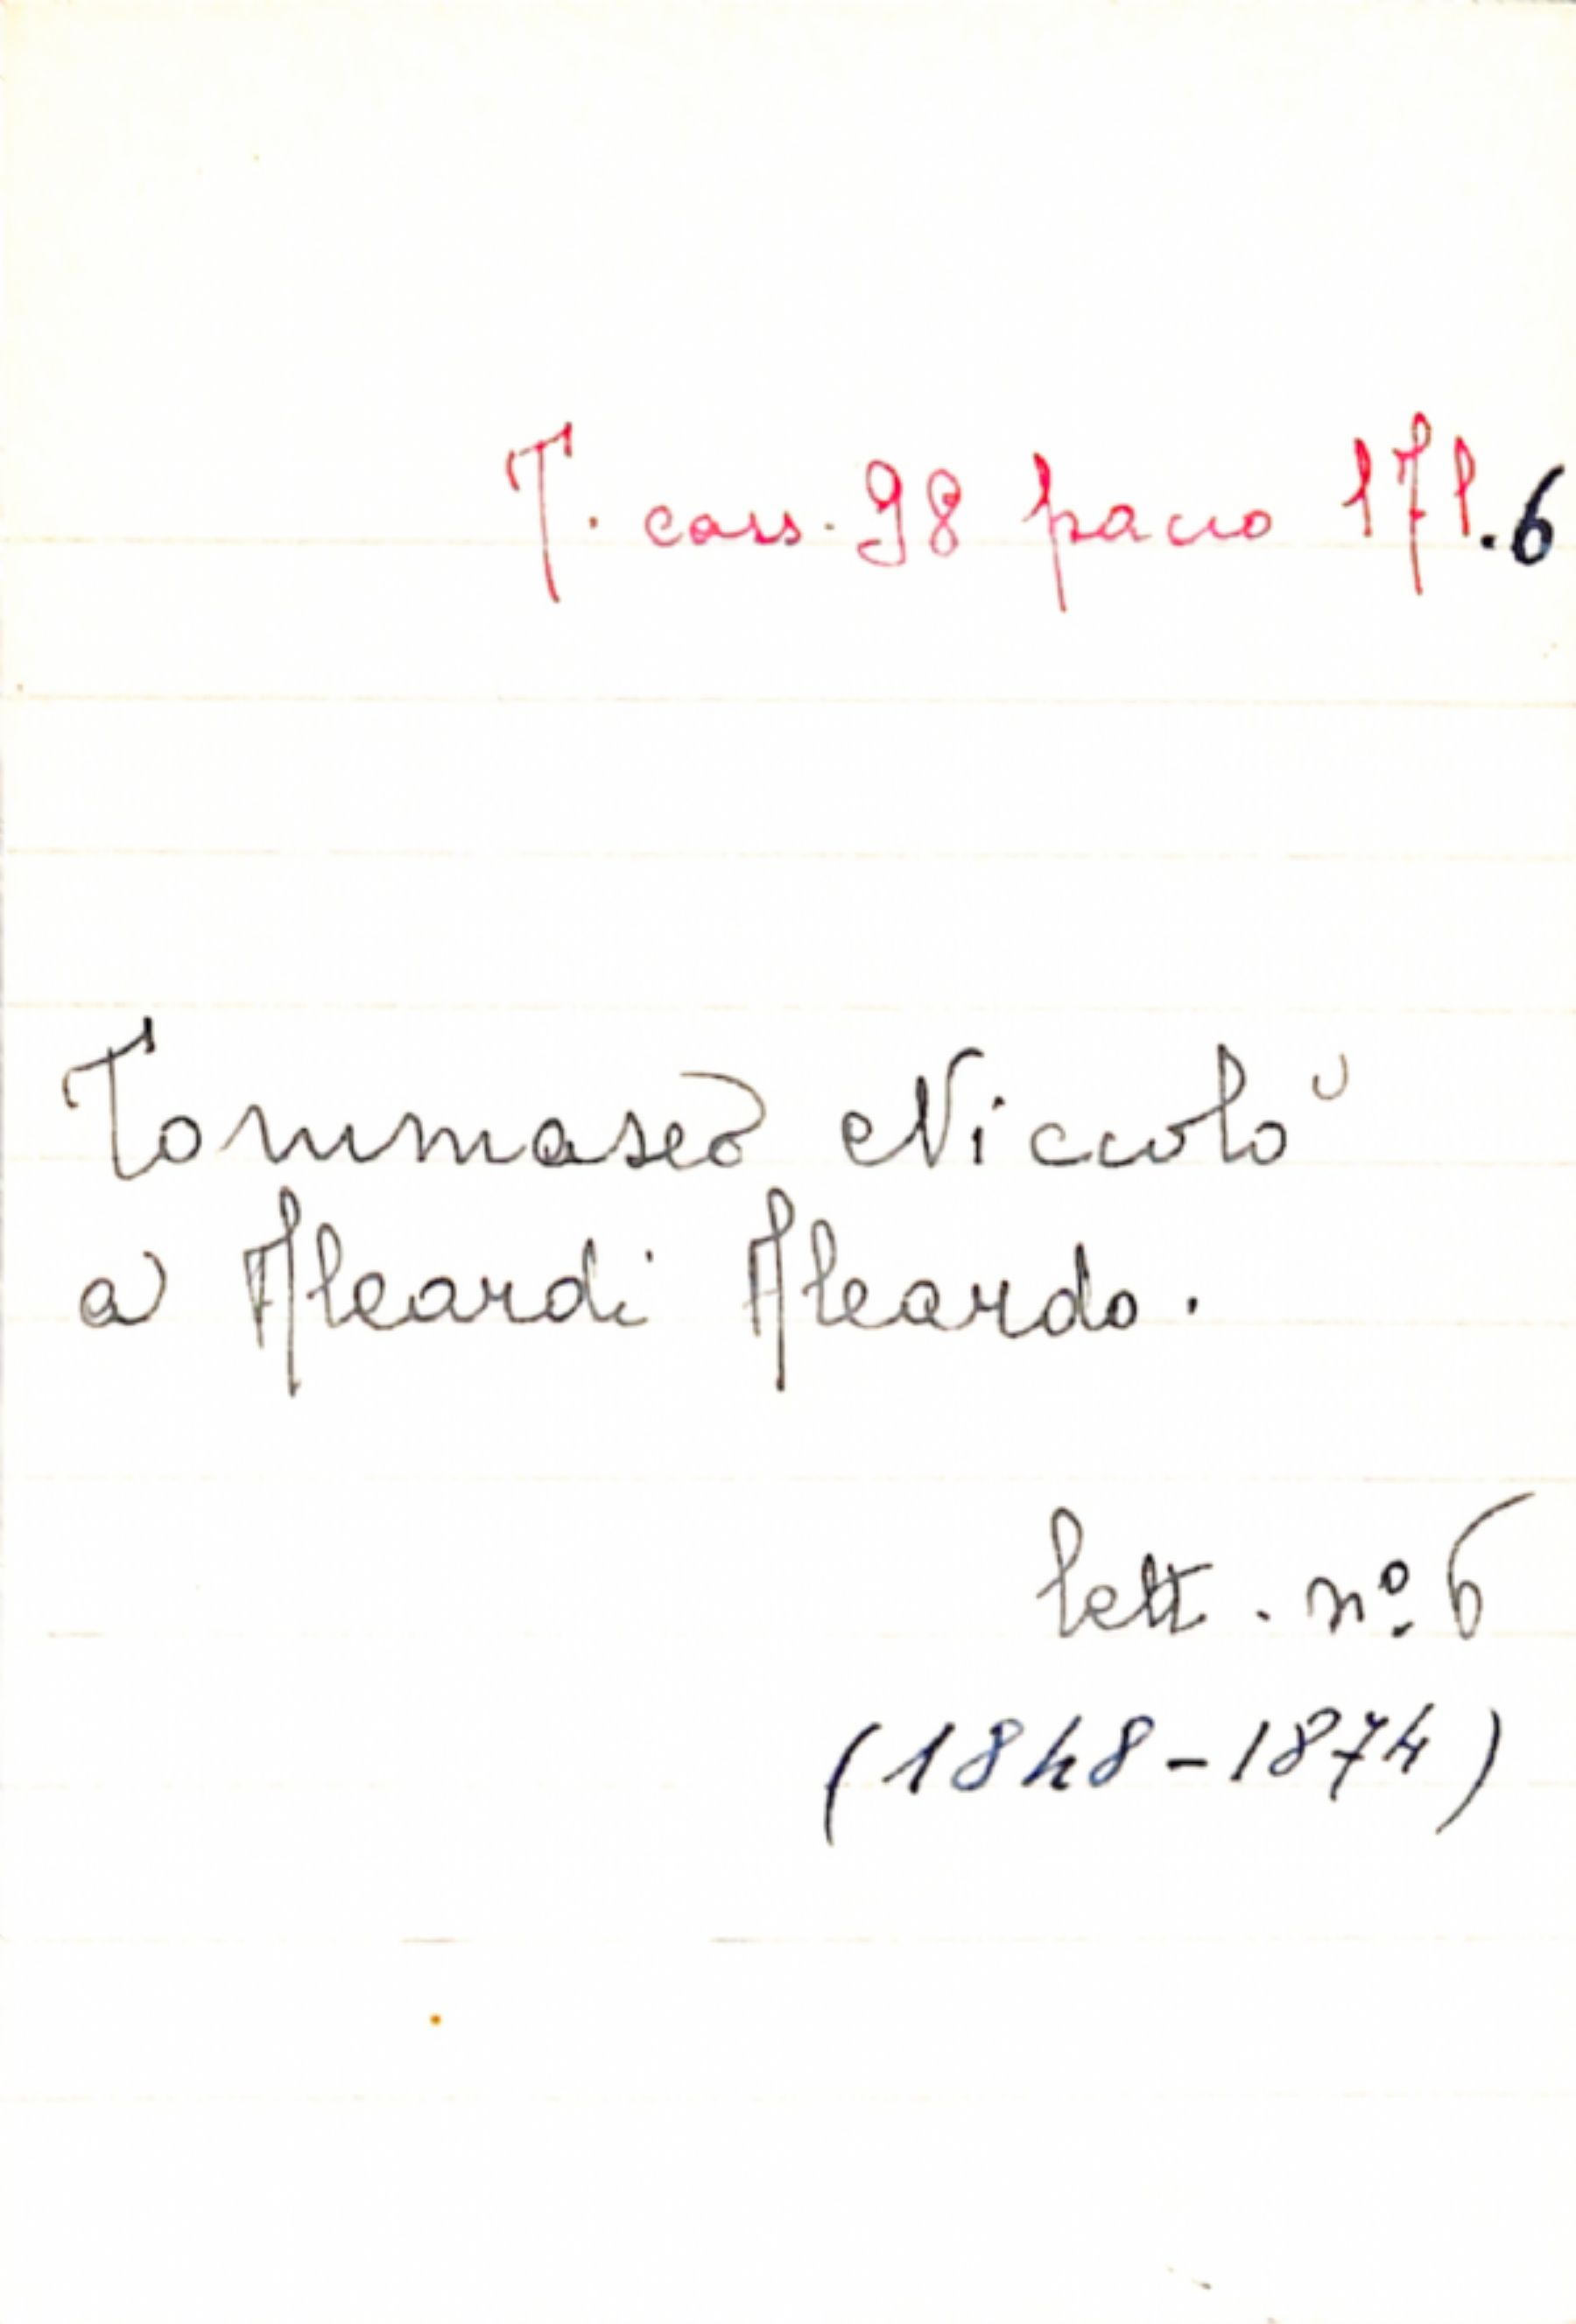 T. cass. 98 pacco 171.6
Tommaseo Niccolò
a Aleardi Aleardo.
lett. nº 6
(1848-1874)